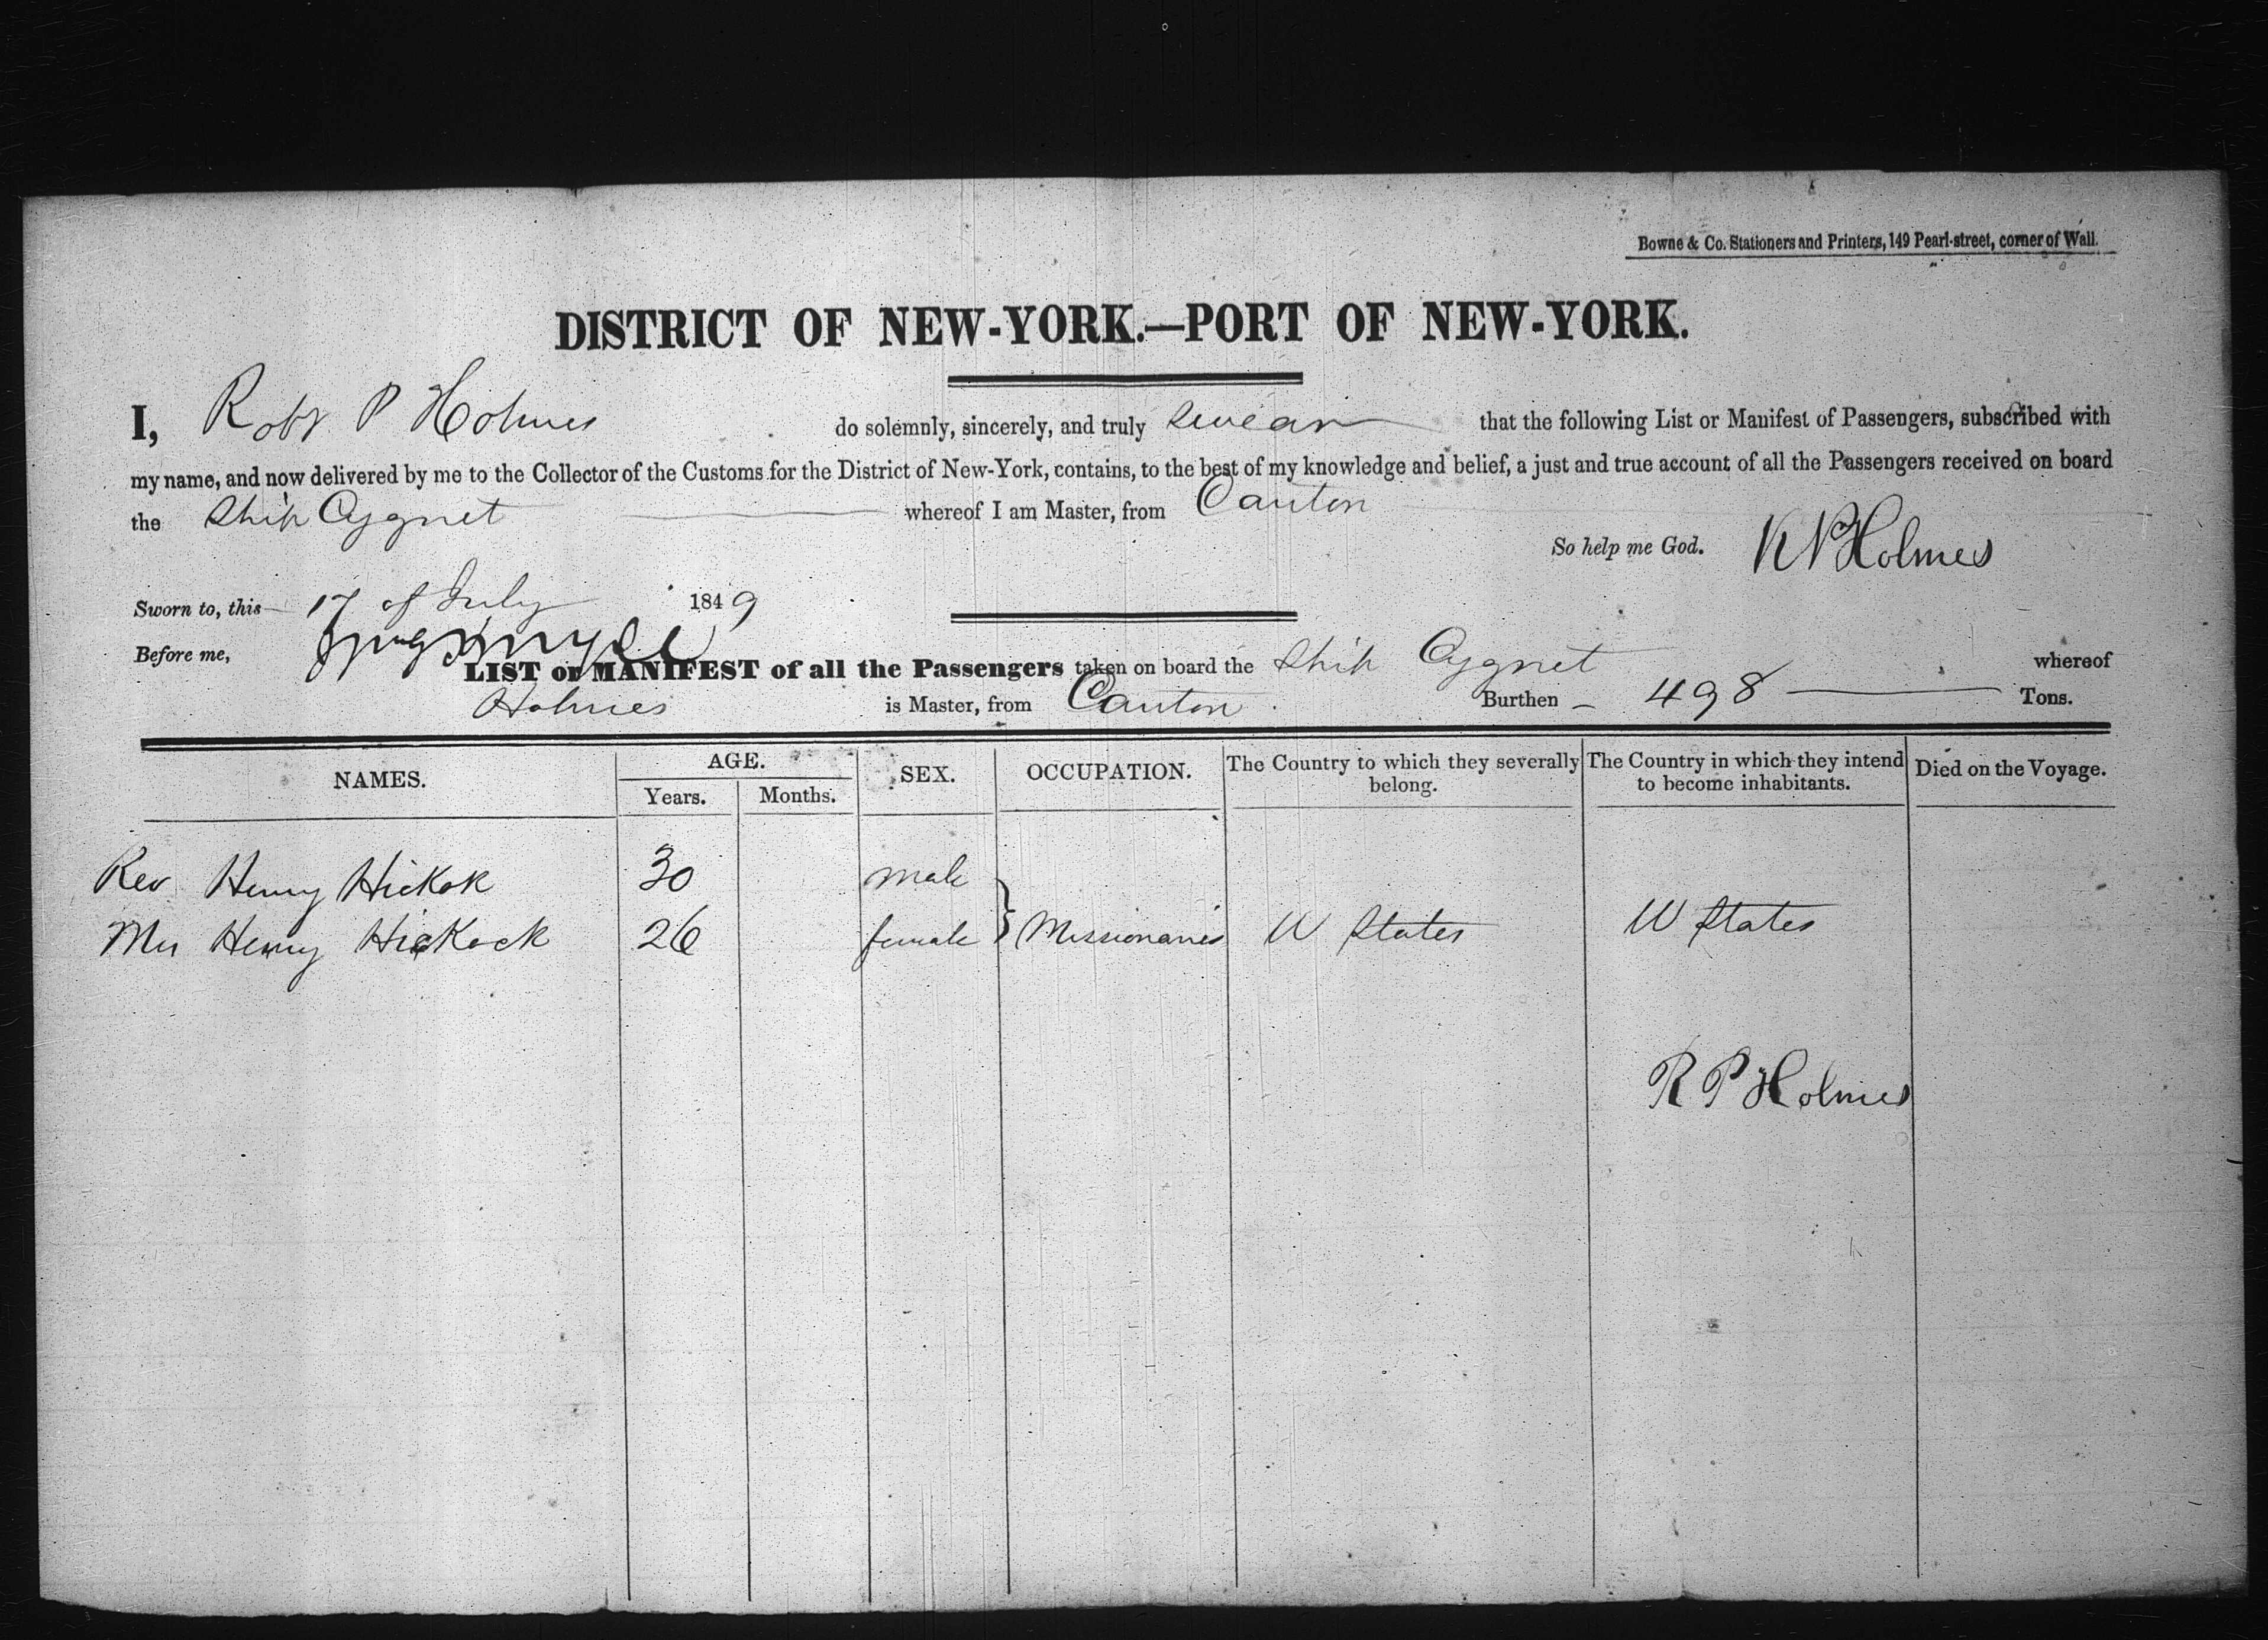 Bowne & Co. Stationers and Printers, 149 Pearl-street, corner of Wall.
DISTRICT OF NEW-YORK.—PORT OF NEW-YORK.
I, Robt P Holmes do solemnly, sincerely, and truly swear that the following List or Manifest of Passengers, subscribed with
my name, and now delivered by me to the Collector of the Customs for the District of New-York, contains, to the best of my knowledge and belief, a just and true account of all the Passengers received on board
the Ship Cygnet whereof I am Master, from Canton
So help me God. R P Holmes
Sworn to, this 17 of July 1849
Before me,
LIST or MANIFEST of all the Passengers taken on board the Ship Cygnet whereof
Holmes is Master, from Canton Burthen 498 Tons.
NAMES. AGE. Years. Months. SEX. OCCUPATION. The Country to which they severally belong. The Country in which they intend to become inhabitants. Died on the Voyage.
Rev Henry Hickok 30 male
Mrs Henry Hickock 26 female } Missionaries U States U States
R P Holmes